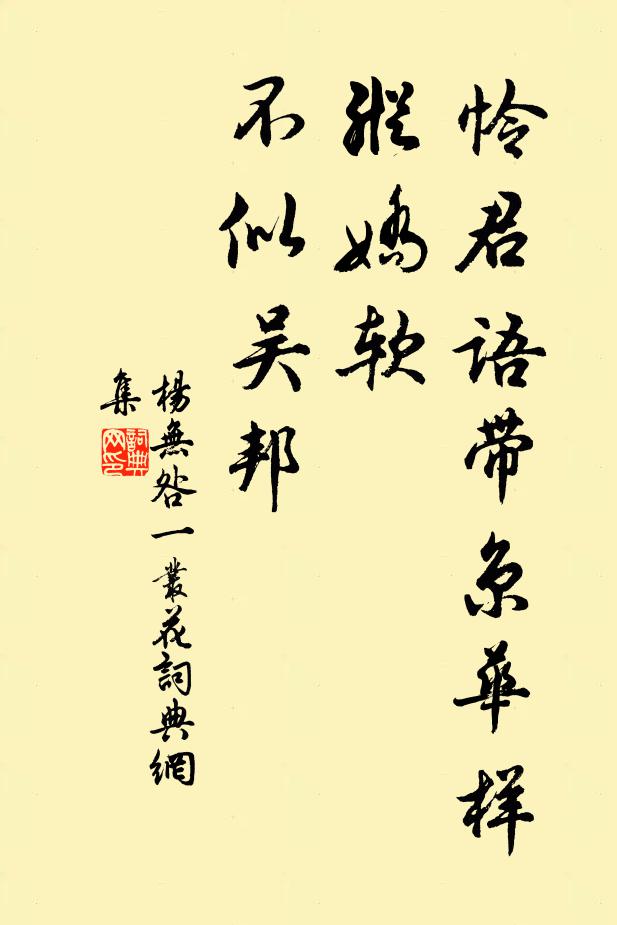 怜君语带京华样
纵娇软
不似吴邦
楊無咎一叢花詞典網
集
詞典
网印